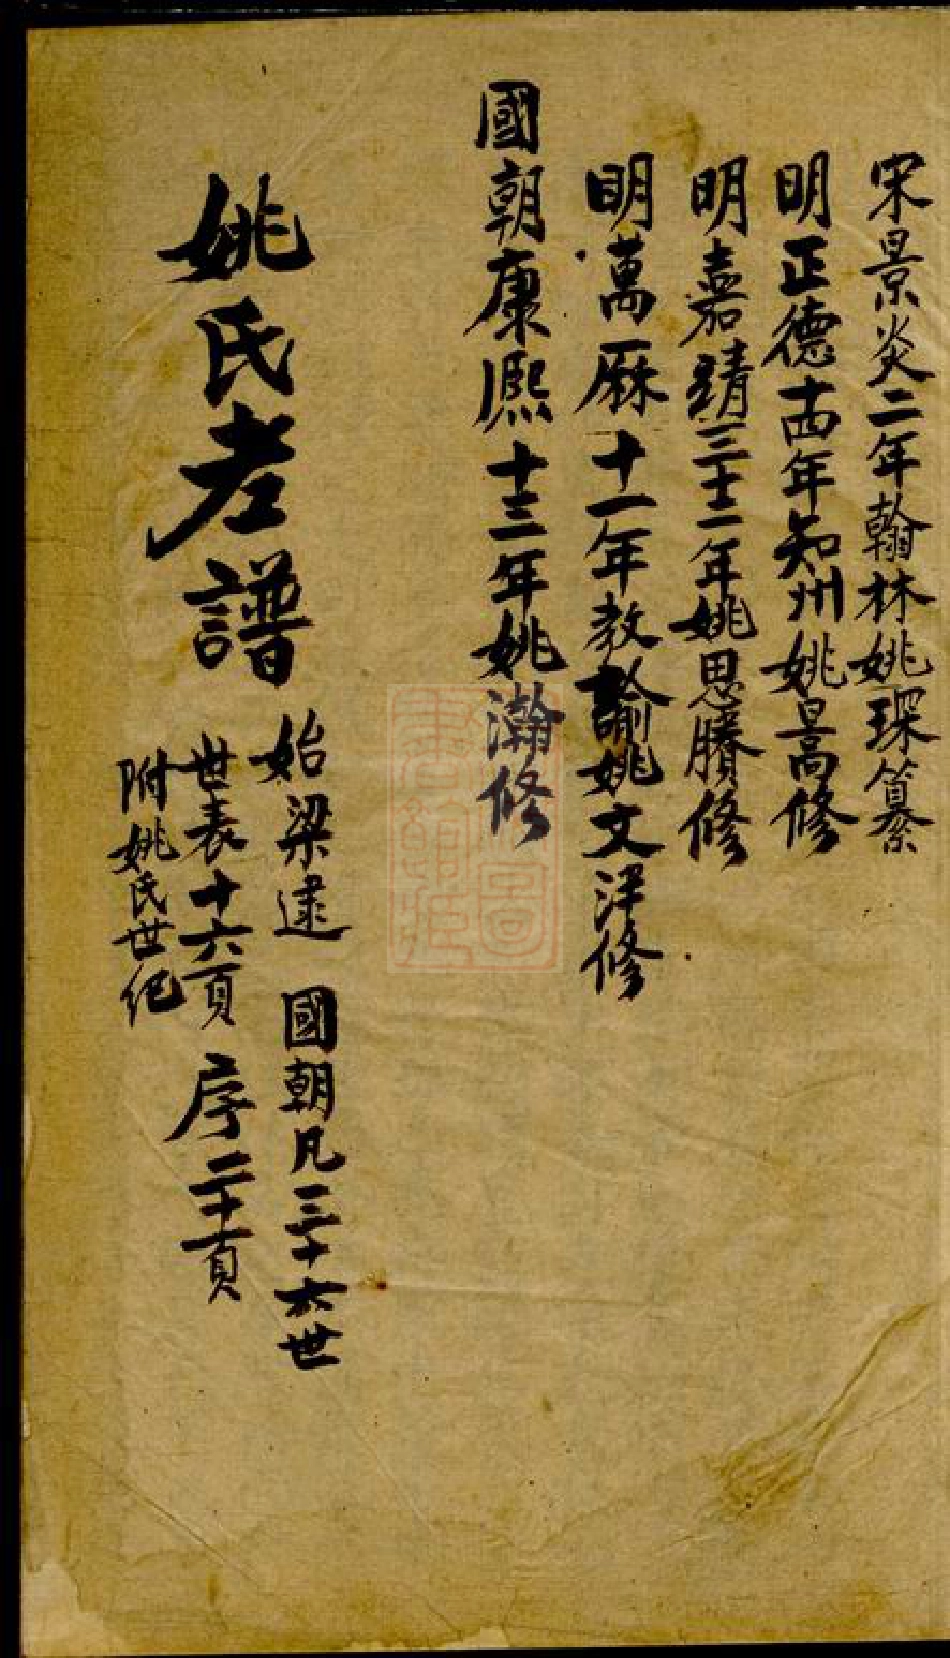 宋景炎二年翰林姚琛纂
明正德十四年知州姚暠修
明嘉靖三十二年姚思賸修
明萬厤十一年教諭姚文洋修
國朝康熙十三年姚瀚修
姚氏老譜
始梁逮 國朝凡三十六世
世表十六頁 序二十頁
附姚氏世紀